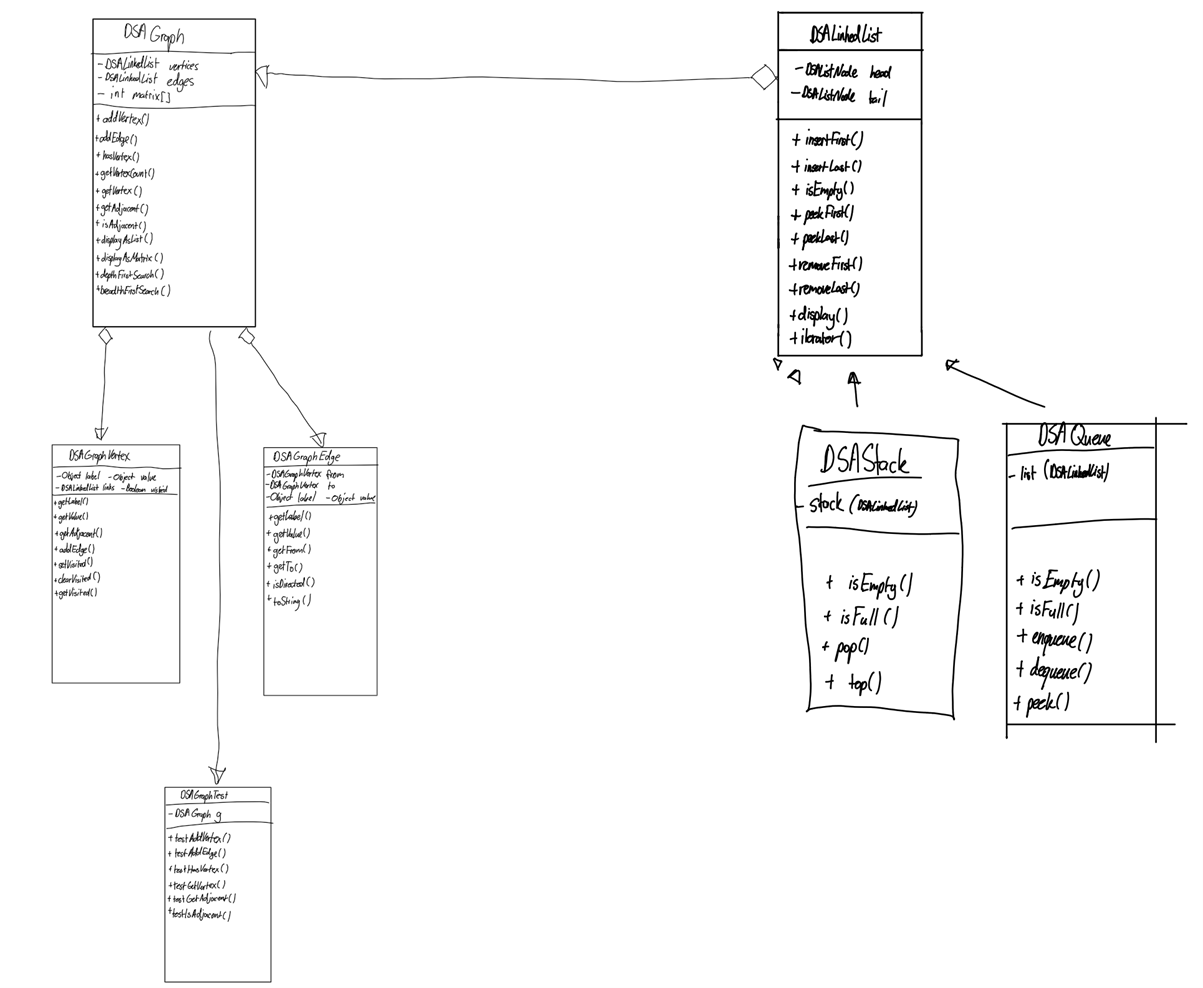 DSA Graph
- DSALinkedList vertices
- DSALinkedList edges
- int matrix[]
+ addVertex()
+ addEdge()
+ hasVertex()
+ getVertexCount()
+ getVertex()
+ getAdjacent()
+ isAdjacent()
+ displayAsList()
+ displayAsMatrix()
+ depthFirstSearch()
+ breadthFirstSearch()
DSALinkedList
- DSAListNode head
- DSAListNode tail
+ insertFirst()
+ insertLast()
+ isEmpty()
+ peekFirst()
+ peekLast()
+ removeFirst()
+ removeLast()
+ display()
+ iterator()
DSAGraphVertex
- Object label - Object value
- DSALinkedList links - Boolean visited
+ getLabel()
+ getValue()
+ getAdjacent()
+ addEdge()
+ setVisited()
+ clearVisited()
+ getVisited()
DSAGraphEdge
- DSAGraphVertex from
- DSAGraphVertex to
- Object label - Object value
+ getLabel()
+ getValue()
+ getFrom()
+ getTo()
+ isDirected()
+ toString()
DSAStack
- stack (DSALinkedList)
+ isEmpty()
+ isFull()
+ pop()
+ top()
DSA Queue
- list (DSALinkedList)
+ isEmpty()
+ isFull()
+ enqueue()
+ dequeue()
+ peek()
DSAGraphTest
- DSAGraph g
+ testAddVertex()
+ testAddEdge()
+ testHasVertex()
+ testGetVertex()
+ testGetAdjacent()
+ testIsAdjacent()